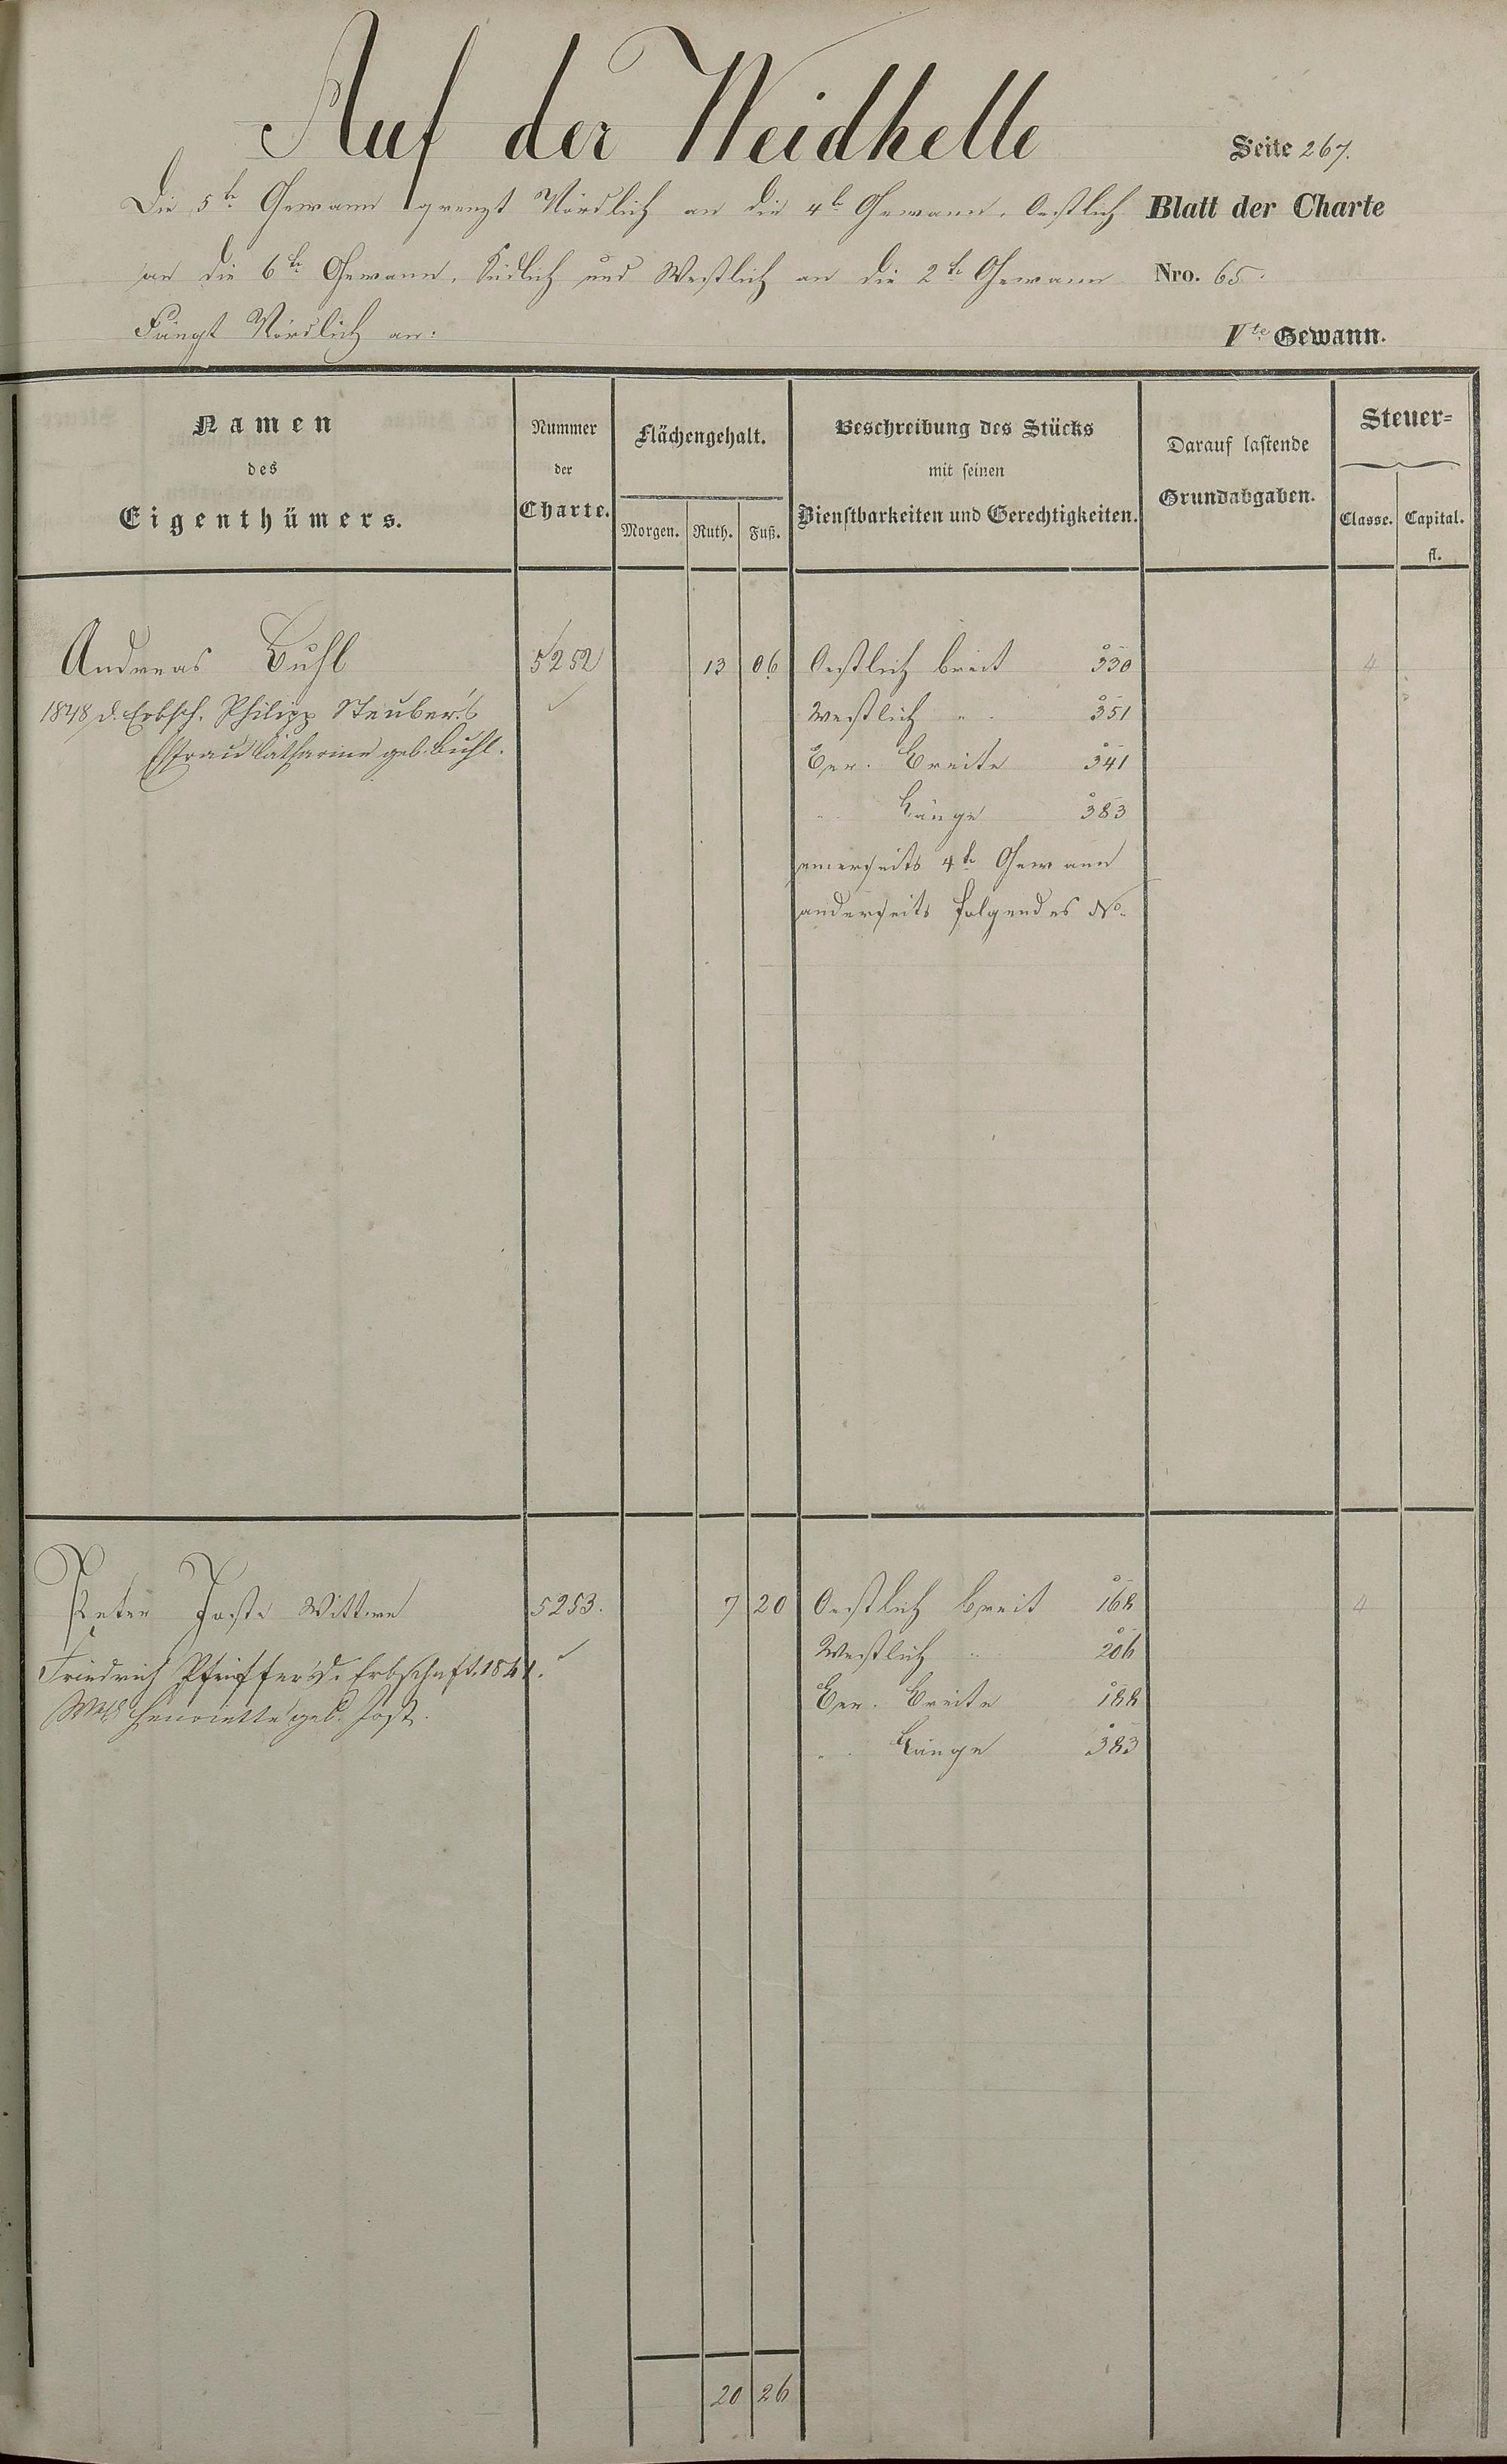 Auf der Weidhelle
Seite 267.
Die 5te Gewann grenzt Nördlich an die 4te Gewann, Oestlich
Blatt der Charte
an die 6te Gewann, Südlich und Westlich an die 2te Gewann
Nro. 65.
Fängt Nördlich an:
Vte Gewann.
Namen
des
Eigenthümers.
Nummer
der
Charte.
Flächengehalt.
Morgen. Ruth. Fuß.
Beschreibung des Stücks
mit seinen
Dienstbarkeiten und Gerechtigkeiten.
Darauf lastende
Grundabgaben.
Steuer-
Classe. Capital.
fl.
Andreas Buhl 5252 13 06 Oestlich breit 330 4
1848 d. Erbsch. Philipp Steuber's Westlich " 351
Ehfrau Catharine geb. Buhl.
Ber. Breite 341
" Länge 383
einerseits 4te Gewann
anderseits folgendes No.
Peter Josts Wittwe 5253. 7 20 Oestlich breit 168 4
Westlich " 206
Friedrich Pfeiffer d. Erbschaft. 1841.
Ber. Breite 188
Henriette geb. Jost.
" Länge 383
20 26